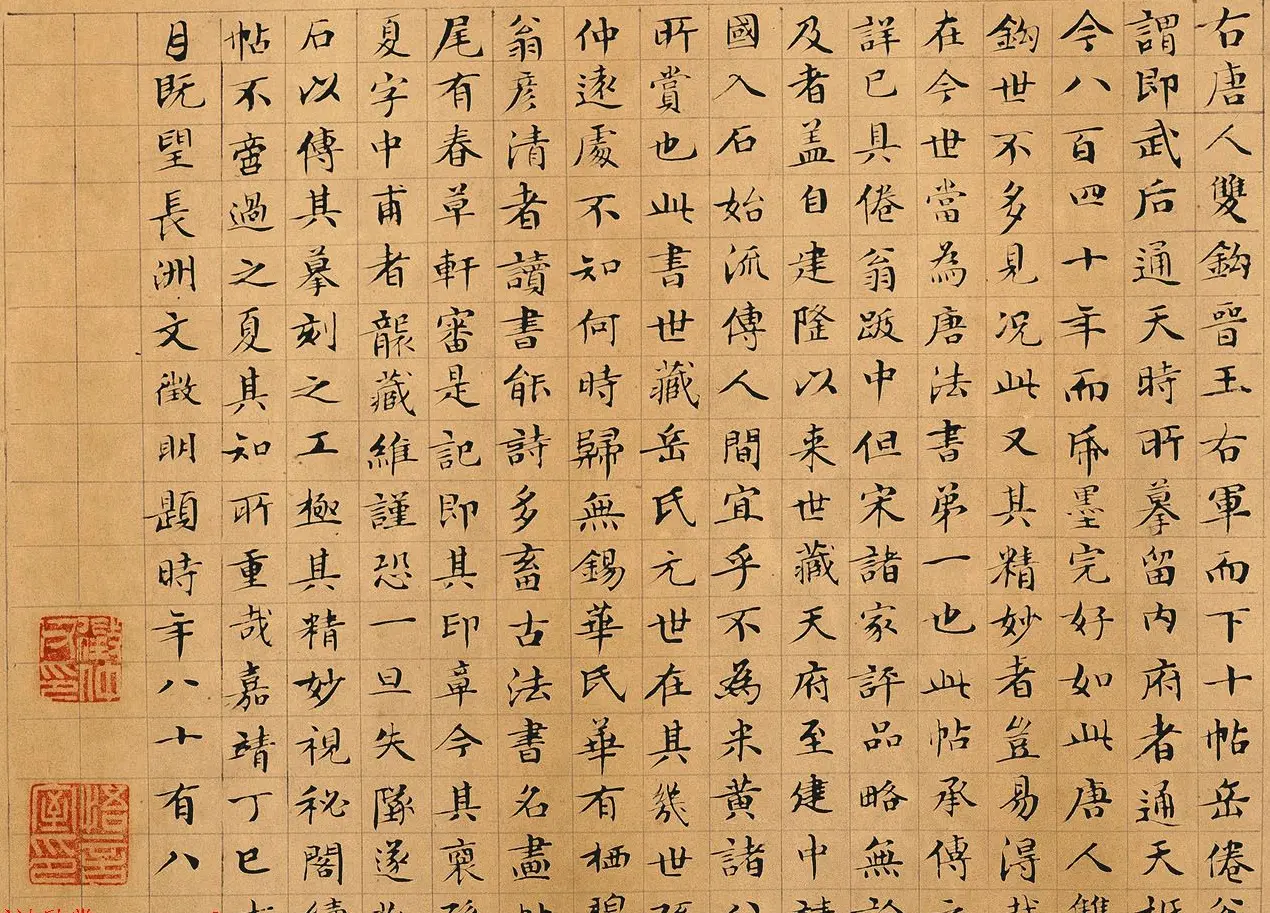 右唐人雙鈎晉王右軍而下十帖岳倦
謂即武后通天時所摹留内府者通天
今八百四十年而帋墨完好如此唐人雙
鈎世不多見况此又其精妙者豈易得
在今世當為唐法書弟一也此帖承傳
詳已具倦翁跋中但宋諸家評品略無
及者盖自建隆以来世藏天府至建中
國入石始流傳人間宜乎不為米黄諸
所賞也此書世藏岳氏元世在其幾世
仲遠處不知何時歸無錫華氏華有栖碧
翁彦清者讀書能詩多畜古法書名畫
尾有春草軒審是記即其印章今其裔
夏字中甫者襲藏維謹恐一旦失墜遂
石以傳其摹刻之工極其精妙視秘閣續
帖不啻過之夏其知所重哉嘉靖丁巳
月既望長洲文徵明題時年八十有八
悟言室印